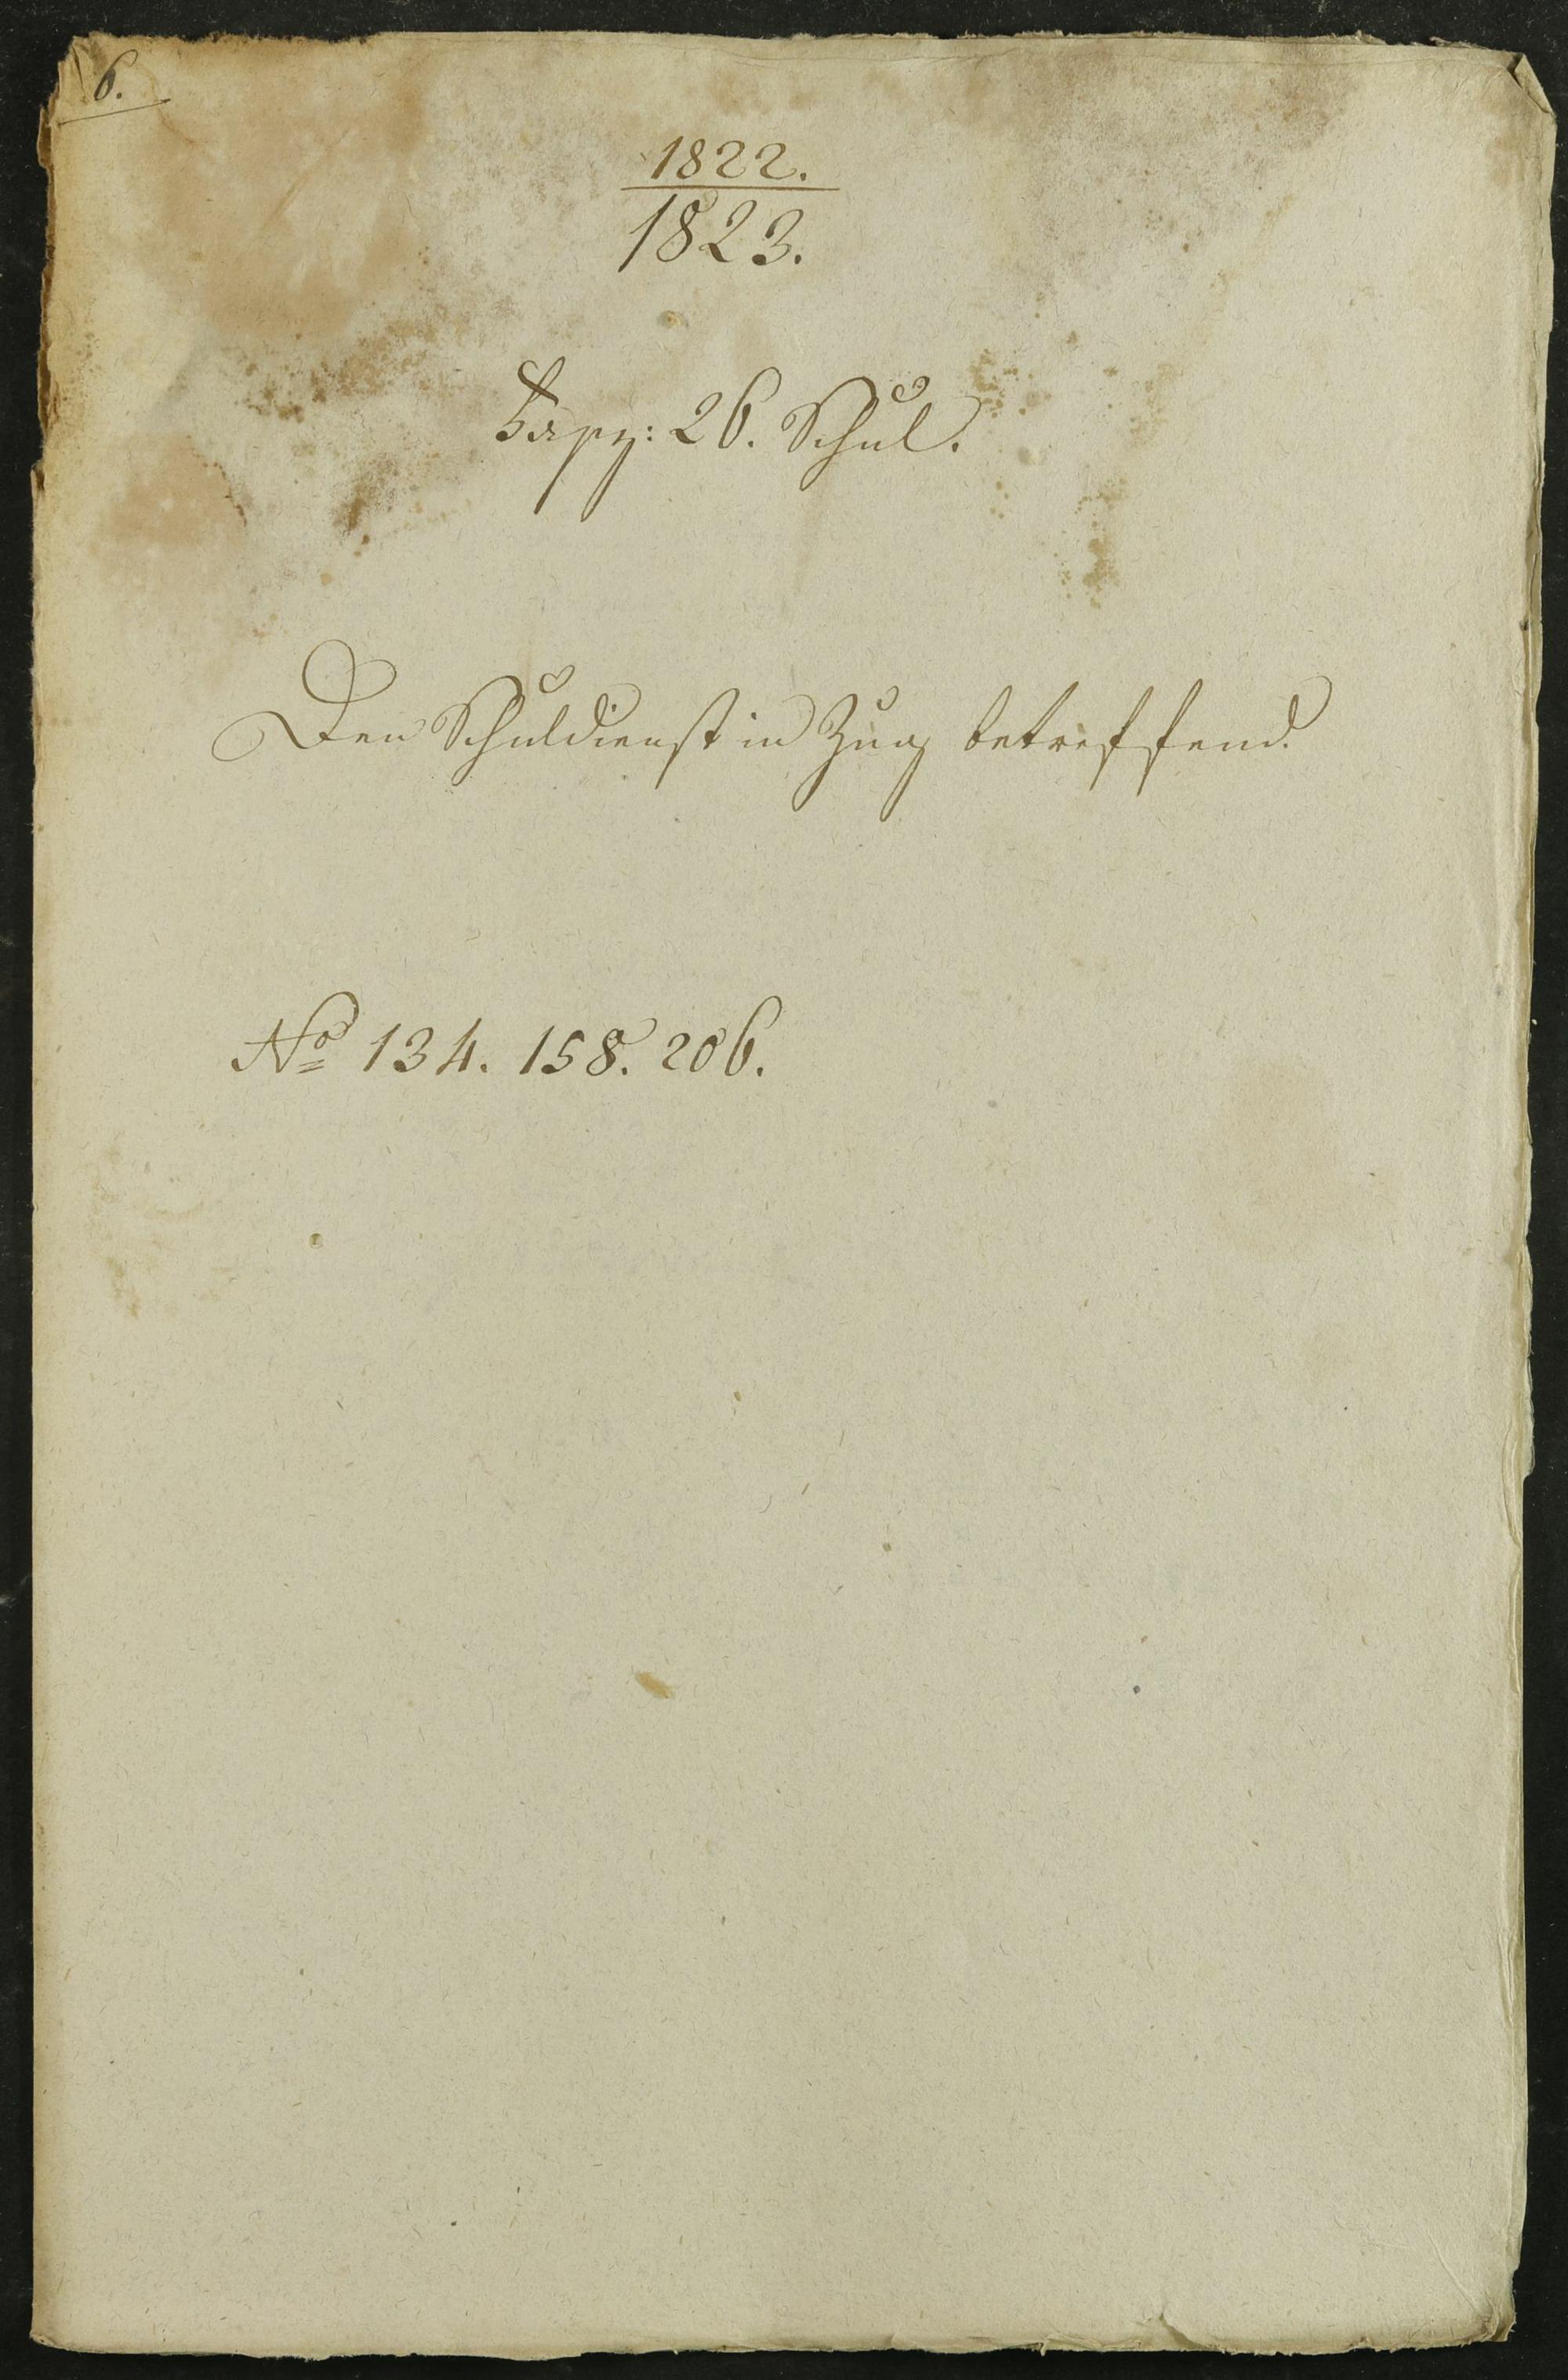 6.
1822.
1823.
Fasz: 26. Schul.
Den Schuldienst in Zug betreffend.
No 134. 158. 206.